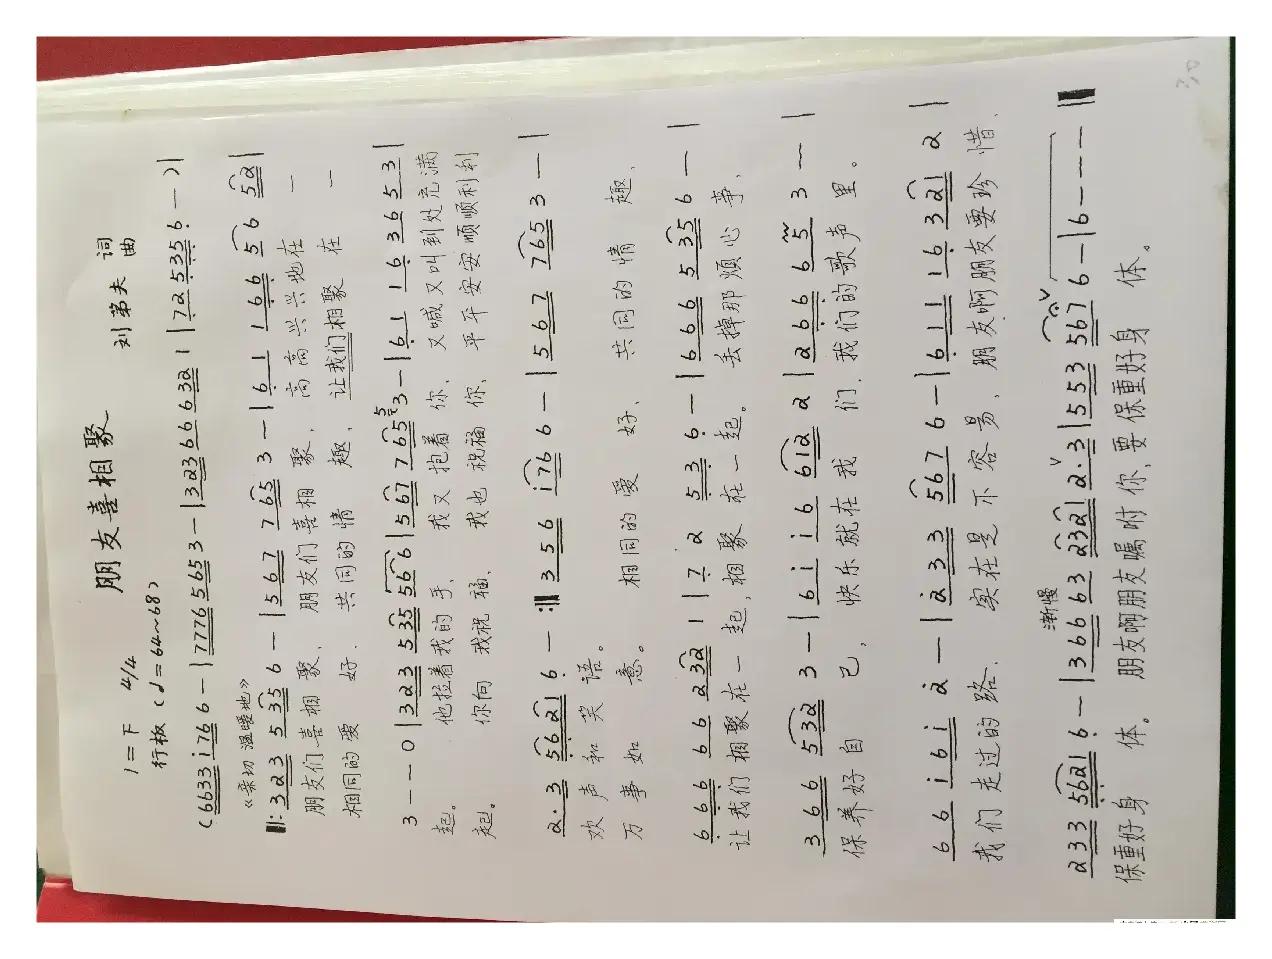 朋友喜相聚
1=F 4/4
行板 (♩=64~68)
刘第夫 词曲
(6633i766-|77765653-|323666321|7253536-)|
《亲切 温暖地》
‖:323 5356-|567 7653-|611 166 56 52|
朋友们喜相聚、朋友们喜相聚、高高兴兴地在一
相同的爱好、共同的情趣、让我们相聚在一
3--0|323 535566|567 7653-|611 1636 53|
起。他拉着我的手、我又抱着你、又喊又叫到处充满
起。你向我祝福、我也祝福你、平平安安顺顺利利
2·3 56216-:‖356 i766-|567 7653-|
欢声和笑语。
万事如意。相同的爱好、共同的情趣、
666 66 2321|72 536-|666 5356-|
让我们相聚在一起,相聚在一起。丢掉那烦心事、
366 5323-|6i i6 6122|266 653-|
保养好自己,快乐就在我们、我们的歌声里。
66 i6i 2-|233 5676-|611 163212|
我们走过的路、实在是不容易、朋友啊朋友要珍惜、
渐慢
233 56216-|366 63 2321 2·3|553 5676-|6---‖
保重好身体。朋友啊朋友嘱咐你,要保重好身体。